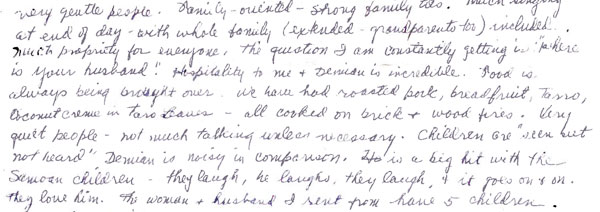 very gentle people. Family-oriented - strong family ties. Much singing
at end of day - with whole family (extended - grandparents too) included.
Much propriety for everyone, the question I am constantly getting is "where
is your husband". Hospitality to me + Demian is incredible. Food is
always being brought over. We have had roasted pork, breadfruit, Tarro,
Coconut creme in Taro Leaves - all cooked on brick + wood fires. Very
quiet people - not much talking unless necessary. Children are "seen but
not heard" Demian is noisy in comparison. He is a big hit with the
Samoan children - they laugh, he laughs, they laugh, + it goes on + on.
They love him. The woman + husband I rent from have 5 children.